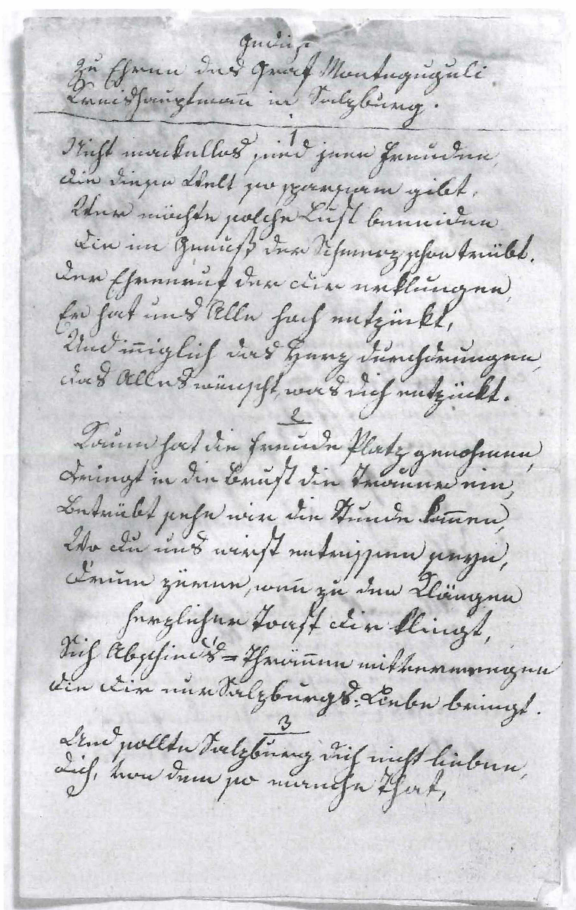 Gedicht
Zu Ehren des Graf Montequguli
Kreishauptmann in Salzburg.
1
Nicht mackellos sind jene Freuden,
die diese Welt so sparsam gibt,
Wer möchte solche Lust beneiden
die im Genuß der Schmerz schon trübt.
Der Ehrenruf der dir erklungen,
Er hat uns Alle hoch entzückt,
Und inniglich das Herz durchdrungen,
das Alles wünscht, was dich entzückt.
2
Kaum hat die Freude Platz genohmen,
dringt in die Brust die Trauer ein,
Betrübt sehn wir die Stunde kommen,
Wo du uns wirst entrissen seyn,
drum zürne, wenn zu den Klängen
herzlicher Toast dir klingt,
Sich Abschieds=Thränen mit vermengen
die dir nur Salzburgs=Liebe bringt.
3
Und sollte Salzburg dich nicht lieben,
dich, von dem so manche That,